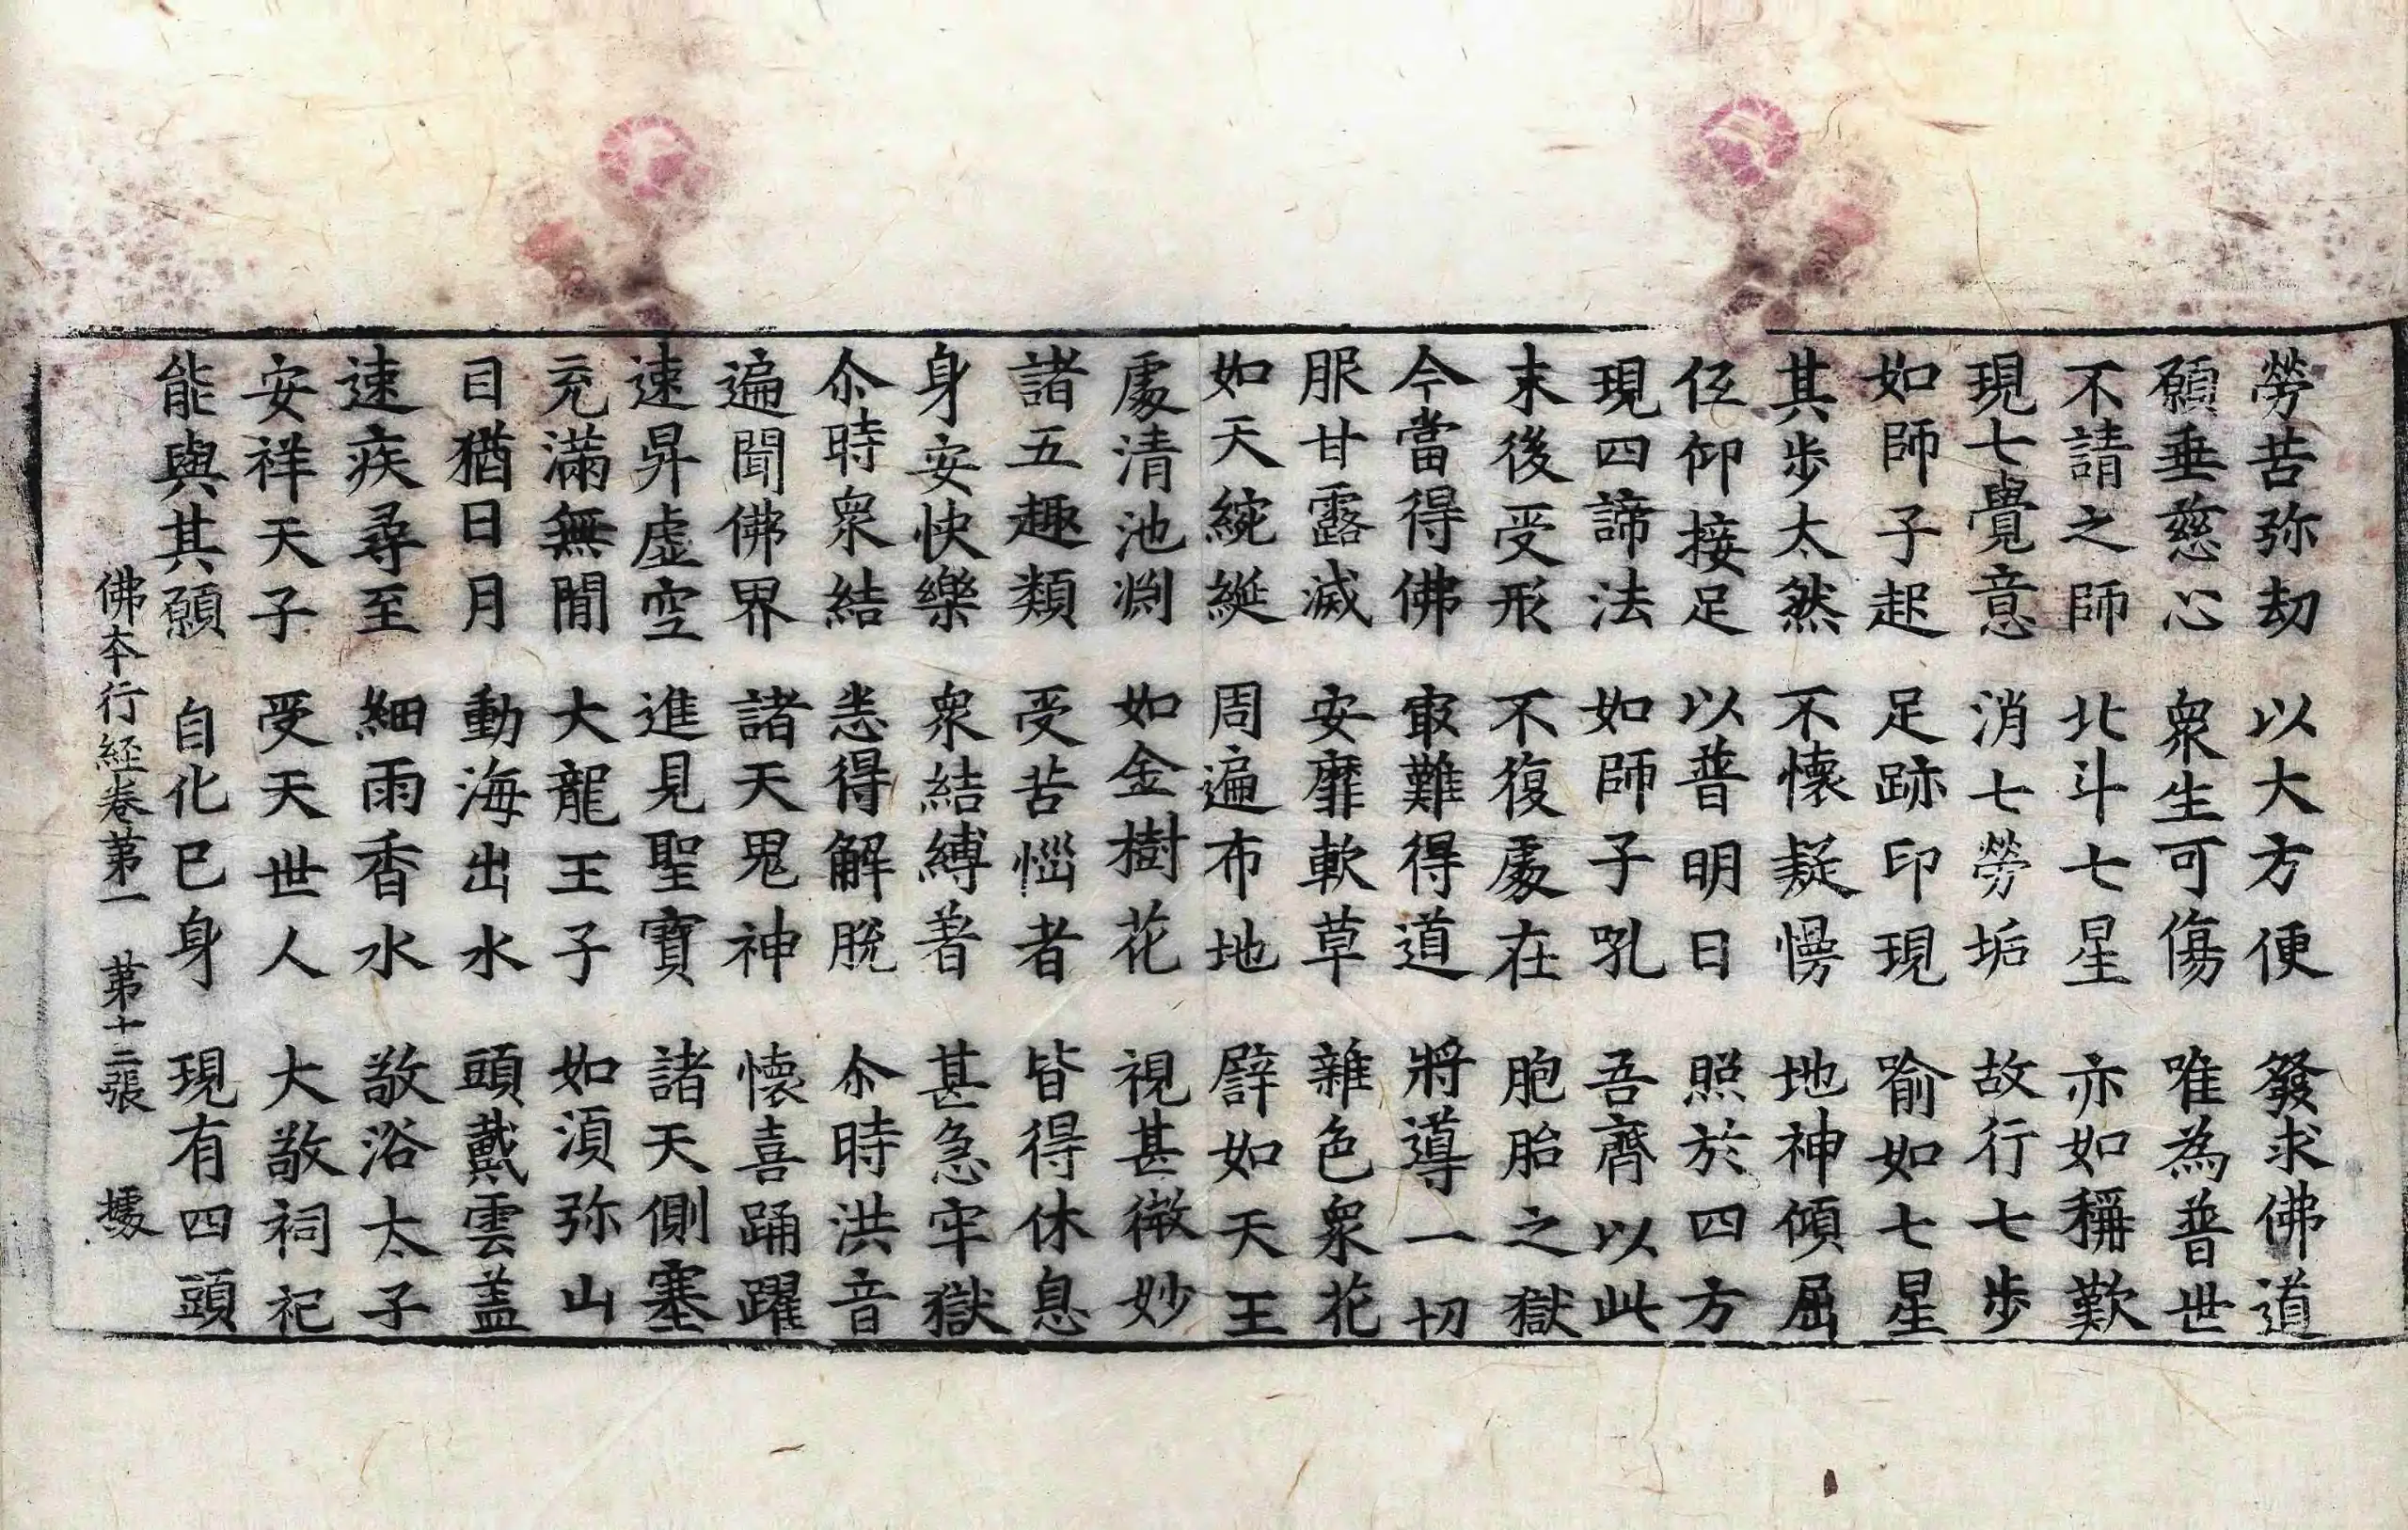 勞苦弥劫 以大方便 發求佛道
願垂慈心 衆生可傷 唯為普世
不請之師 北斗七星 亦如稱歎
現七覺意 消七勞垢 故行七步
如師子起 足跡印現 喻如七星
其步太然 不懷疑慢 地神傾屈
仰接足 以普明日 照於四方
現四諦法 如師子吼 吾齊以此
末後受形 不復處在 胞胎之獄
今當得佛 㝡難得道 將導一切
服甘露滅 安靡軟草 雜色衆花
如天綩綖 周遍布地 譬如天王
處清池渕 如金樹花 視甚微妙
諸五趣類 受苦惱者 皆得休息
身安快樂 衆結縛著 甚急牢獄
尒時衆結 悉得解脫 尒時洪音
遍聞佛界 諸天鬼神 懷喜踊躍
速昇虛空 進見聖寶 諸天側塞
充滿無閒 大龍王子 如湏弥山
目猶日月 動海出水 頭戴雲蓋
速疾尋至 細雨香水 敬浴太子
安祥天子 受天世人 大敬祠祀
能與其願 自化已身 現有四頭
佛本行經卷苐一 苐十二張 據